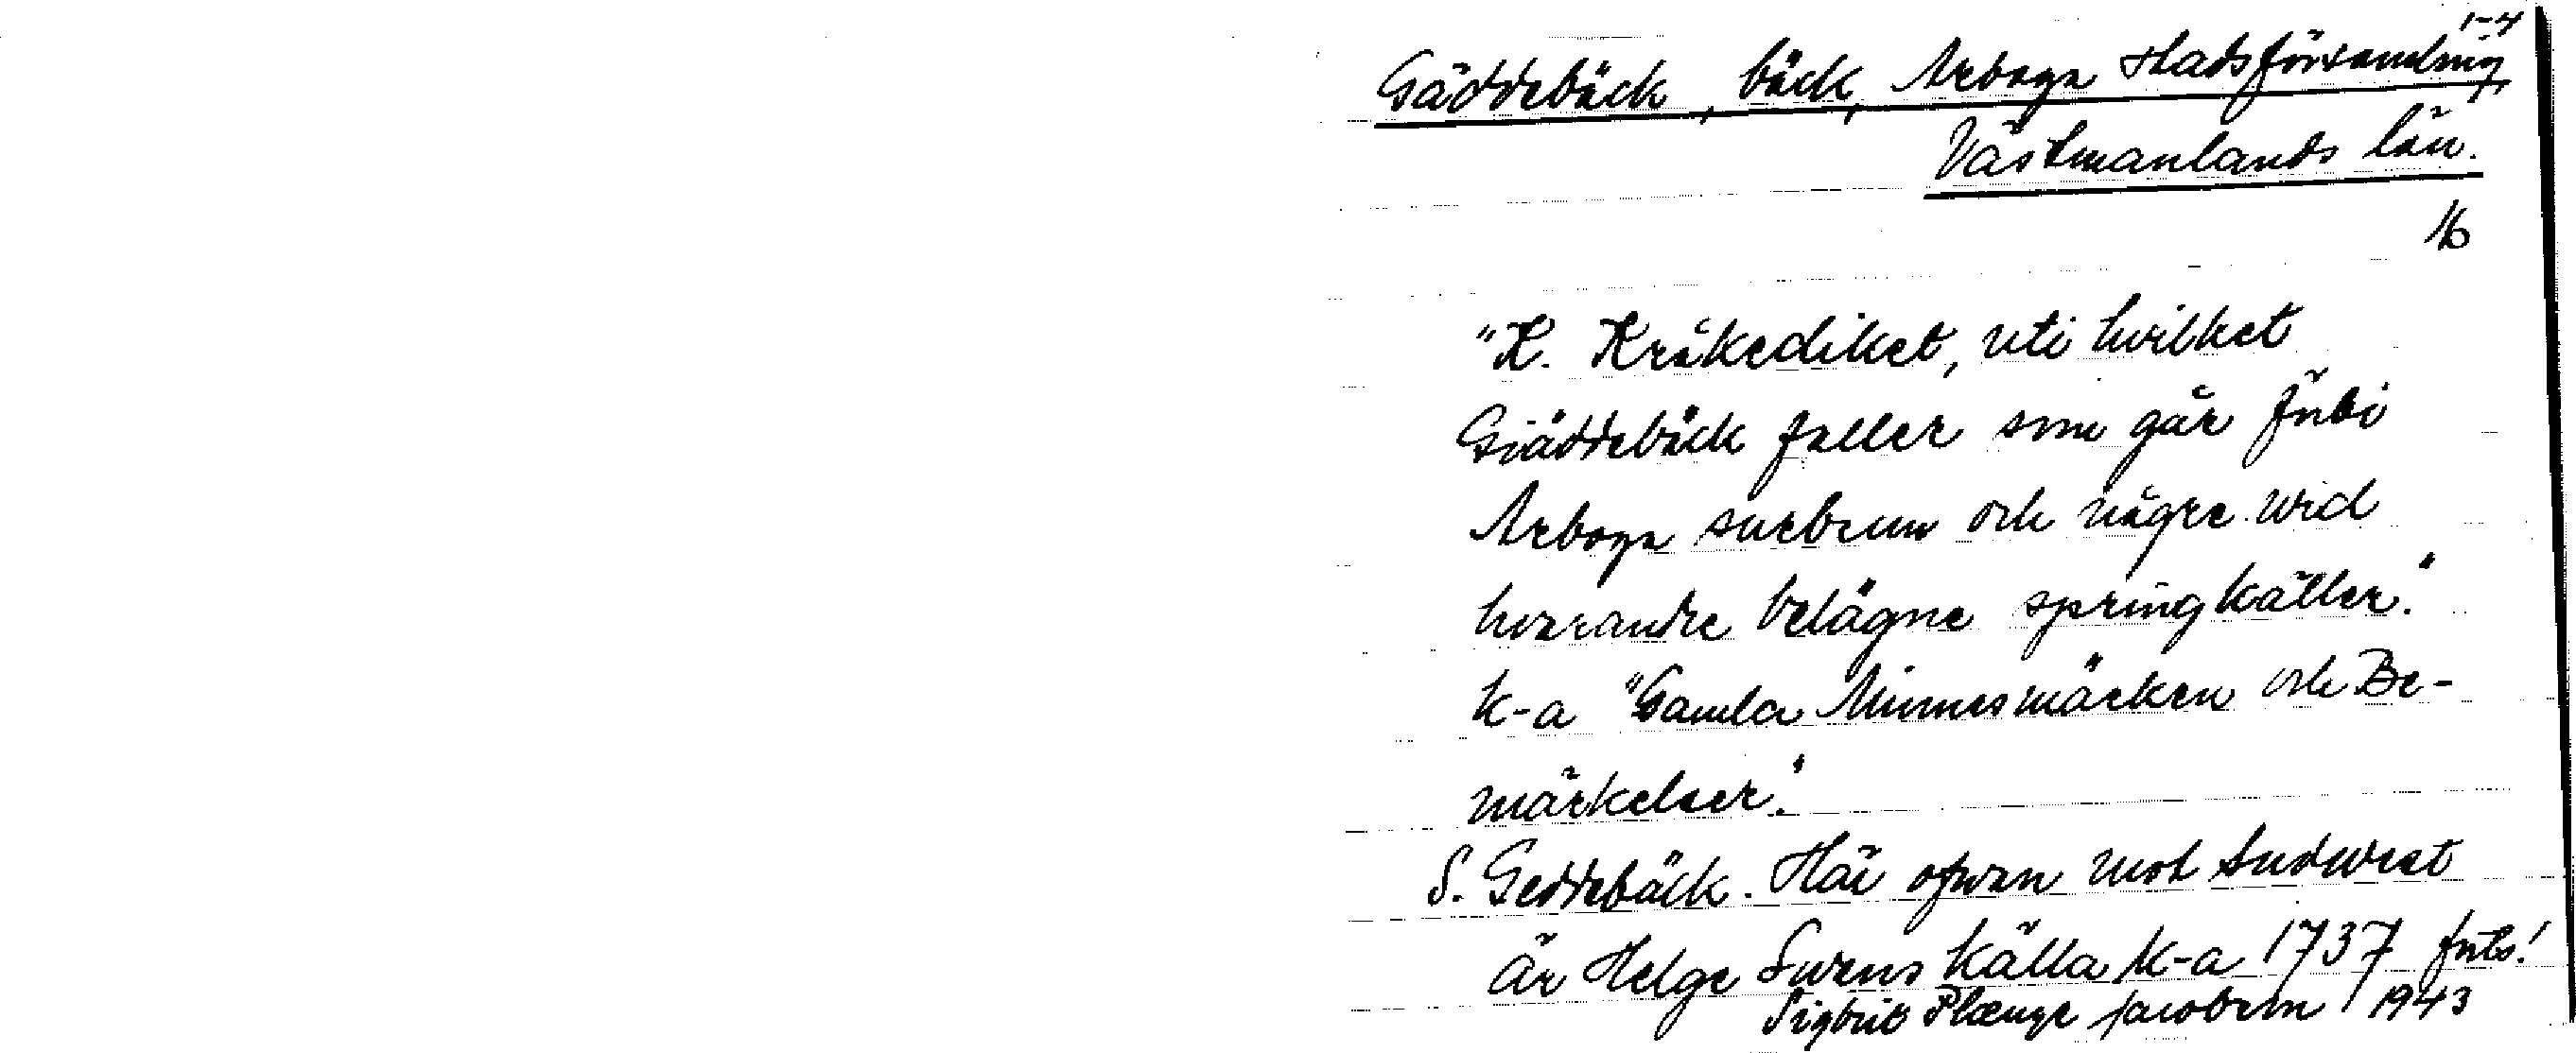 1-4
Gäddebäck, bäck, Arboga stadsförsamling,
Västmanlands län.
16
"K. Kråkediket, uti hvilket
Giäddebäck faller som går förbi
Arboga surbrun och någre wid
hvarandre belägne springkäller."
k-a "Gamla Minnesmärken och Be-
märkelser."
S. Geddebäck. Här ofwan mot Sudwest
är Helge Swens källa k-a 1737 forts!
Sigbrit Plænge Jacobson 1943